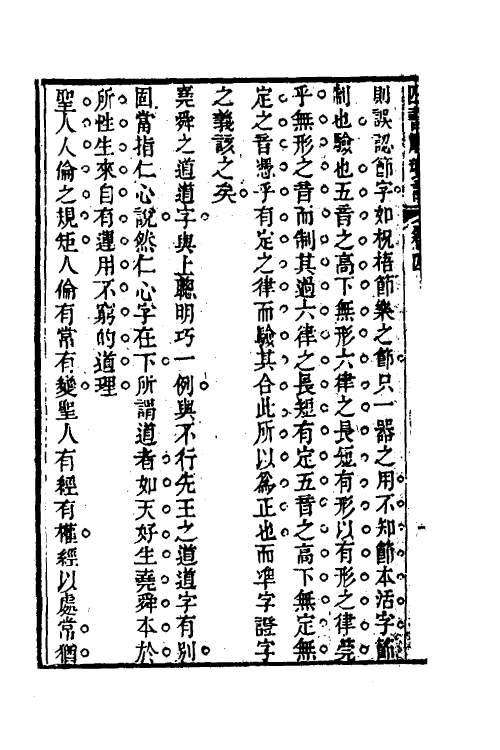 則誤認節字如柷梧節樂之節只一器之用不知節本活字節
制也驗也五音之高下無形六律之長短有形以有形之律莞
乎無形之音而制其過六律之長短有定五音之高下無定無
定之音憑乎有定之律而驗其合此所以為正也而準字證字
之義該之矣
堯舜之道道字與上聰明巧一例與不行先王之道道字有別
固當指仁心說然仁心字在下所謂道者如天好生堯舜本於
所性生來自有運用不窮的道理
聖人人倫之規矩人倫有常有變聖人有經有權經以處常猶